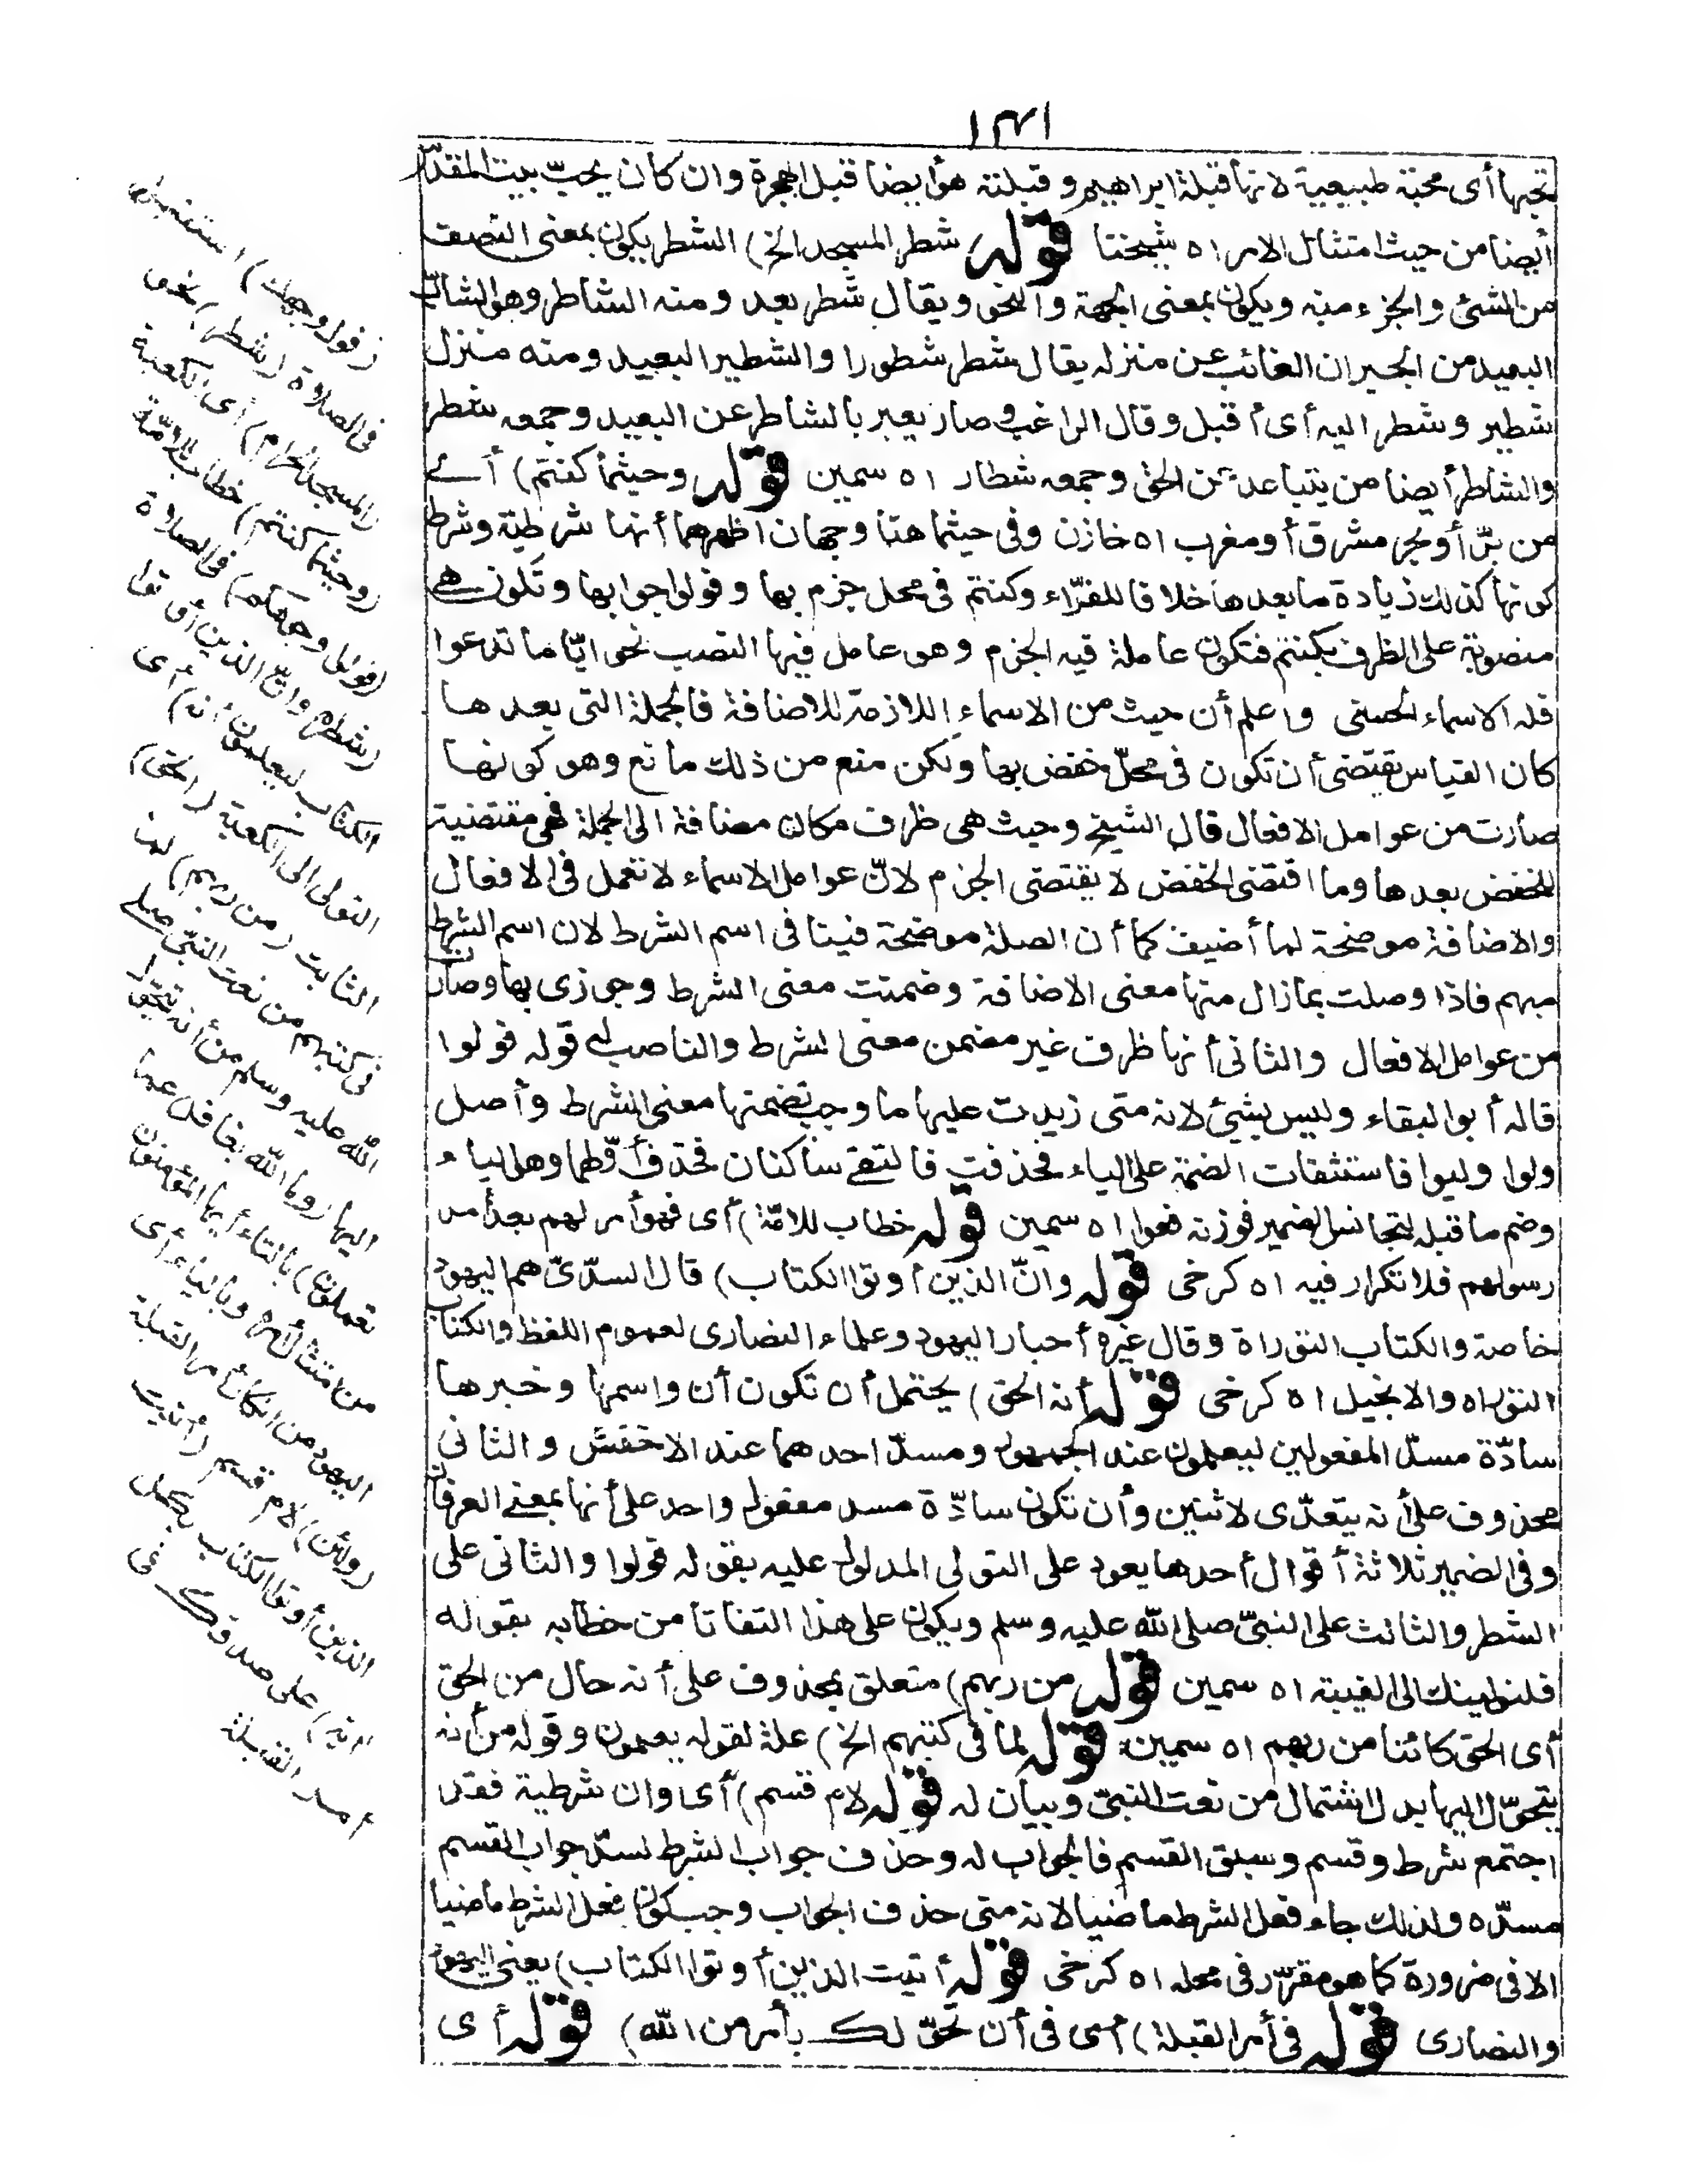 ١٣١
تحبها أى محبة طبيعية لانها قبلة ابراهيم وقبلته هو أيضا قبل الهجرة وان كان يحبّ بيت المقدّس
أيضا من حيث امتثال الامر اه شيخنا قوله (شطر المسجد الخ) الشطر يكون بمعنى النصف
من الشئ والجزء منه ويكون بمعنى الجهة والنحو ويقال شطر بعد ومنه الشاطر وهو الشابّ
البعيد من الجيران الغائب عن منزله يقال شطر شطورا والشطير البعيد ومنه منزل
شطير وشطر اليه أى أقبل وقال الراغب وصار يعبر بالشاطر عن البعيد وجمعه شطر
والشاطر أيضا من يتباعد من الحق وجمعه شطار اه سمين قوله وحيثما كنتم) أى
من برّ أو بحر مشرق أو مغرب اه خازن وفى حيثما هنا وجهان اظهرهما أنها شرطية وشرط
كونها كذلك زيادة ما بعدها خلافا للفرّاء وكنتم فى محل جزم بها وفولوا جوابها وتكون هى
منصوبة على الظرف بكنتم فتكون عاملة فيه الجزم وهو عامل فيها النصب نحو ايّا ما تدعوا
فله الاسماء الحسنى واعلم أن حيث من الاسماء اللازمة للاضافة فالجملة التى بعدها
كان القياس يقتضى أن تكون فى محلّ خفض بها ولكن منع من ذلك مانع وهو كونها
صارت من عوامل الافعال قال الشيخ وحيث هى ظرف مكان مضافة الى الجملة فهى مقتضية
للخفض بعدها وما اقتضى الخفض لا يقتضى الجزم لانّ عوامل الاسماء لا تعمل فى الافعال
والاضافة موضحة لما أضيف كما أن الصلة موضحة فينافى اسم الشرط لان اسم الشرط
مبهم فاذا وصلت بما زال منها معنى الاضافة وضمنت معنى الشرط وجوزى بها وصارت
من عوامل الافعال والثانى أنها ظرف غير مضمن معنى الشرط والناصب له قوله فولوا
قاله أبو البقاء وليس بشئ لانه متى زيدت عليها ما وجب تضمنها معنى الشرط وأصل
ولوا وليوا فاستثقلت الضمة على الياء فحذفت فالتقى ساكنان فحذف أوّلهما وهو الياء
وضم ما قبله لتجانس الضمير فوزنه فعوا اه سمين قوله خطاب للامّة) أى فهو أمر لهم بعد أمر
رسولهم فلا تكرار فيه اه كرخى قوله وانّ الذين أوتوا الكتاب) قال السدّىّ هم اليهود
خاصة والكتاب التوراة وقال غيره أحبار اليهود وعلماء النصارى لعموم اللفظ والكتاب
التوراه والانجيل اه كرخى قوله أنه الحق) يحتمل أن تكون أن واسمها وخبرها
سادّة مسدّ المفعولين ليعلمون عند الجمهور ومسدّ احدهما عند الاخفش والثانى
محذوف على أنه يتعدّى لاثنين وأن تكون سادّة مسد مفعول واحد على أنها بمعنى العرفان
وفى الضمير ثلاثة أقوال أحدها يعود على التولى المدلول عليه بقوله فولوا والثانى على
الشطر والثالث على النبىّ صلى الله عليه وسلم ويكون على هذا التفاتا من خطابه بقوله
فلنولينك الى الغيبة اه سمين قوله من ربهم) متعلق بمحذوف على أنه حال من الحق
أى الحق كائنا من ربهم اه سمين قوله لما فى كتبهم الخ) علة لقوله يعلمون وقوله من أنه
يتحوّل اليها بدل اشتمال من نعت النبىّ وبيان له قوله لام قسم) أى وان شرطية فقد
اجتمع شرط وقسم وسبق القسم فالجواب له وحذف جواب الشرط لسدّ جواب القسم
مسدّه ولذلك جاء فعل الشرط ماضيا لانه متى حذف الجواب وجب كون فعل الشرط ماضيا
الا فى ضرورة كما هو مقرّر فى محله اه كرخى قوله أتيت الذين أوتوا الكتاب) يعنى اليهود
والنصارى قوله فى أمر القبلة) أى فى أن تحوّلك بأمر من الله) قوله أى
(فول وجهك) استقبل
فى الصلاة (شطر) نحو
(المسجد الحرام) أى الكعبة
(وحيثما كنتم) خطاب للامّة
(فولوا وجوهكم) فى الصلاة
(شطره وانّ الذين أوتوا
الكتاب ليعلمون أنه) أى
التولى الى الكعبة (الحق)
الثابت (من ربهم) لما
فى كتبهم من نعت النبىّ صلى
الله عليه وسلم من أنه يتحوّل
اليها (وما الله بغافل عما
تعملون) بالتاء أيها المؤمنون
من امتثال أمره وبالياء أى
اليهود من انكار أمر القبلة
(ولئن) لام قسم (أتيت
الذين أوتوا الكتاب بكل
آية) على صدقك فى
أمر القبلة